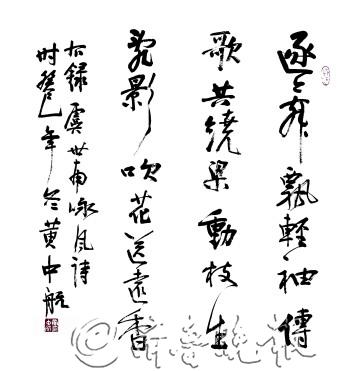 逐舞飄輕袖傳
歌共繞梁動枝生
亂影吹花送遠香
右録虞世南咏風詩
时癸巳年冬黄中航
齊魯晚報